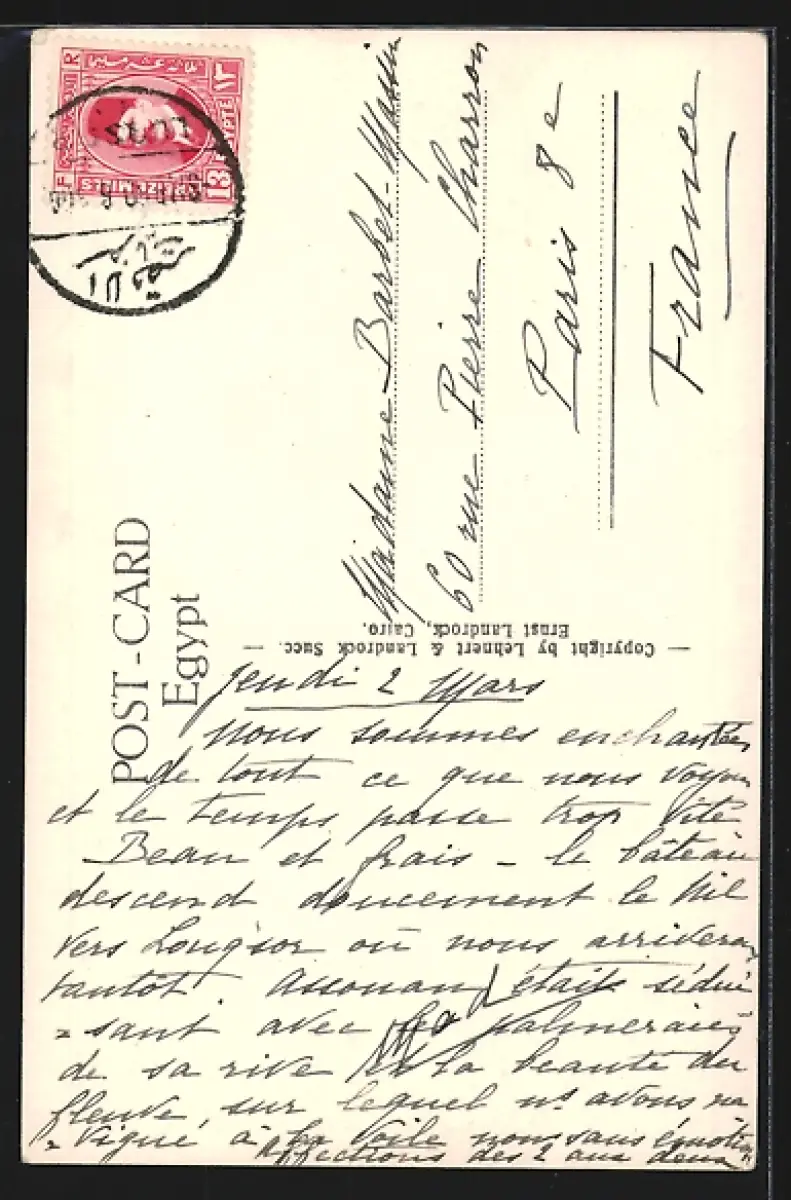 POST-CARD
Egypt
EGYPTE
13
MILLS
LUXSOR
الاقصر
Madame Barbet-Massin
60 rue Pierre Charron
Paris 8e
France
— Copyright by Lehnert & Landrock Succ. —
Ernst Landrock, Cairo.
Jeudi 2 Mars
Nous sommes enchantés
de tout ce que nous voyons
et le temps passe trop vite
Beau et frais - le bâteau
descend doucement le Nil
vers Louqsor où nous arriverons
tantôt. Assouan était sédui
-sant avec palmeraies
de sa rive la beauté du
fleuve, sur lequel ns avons na
-vigué à la voile non sans émotion
Affections des 2 aux deux